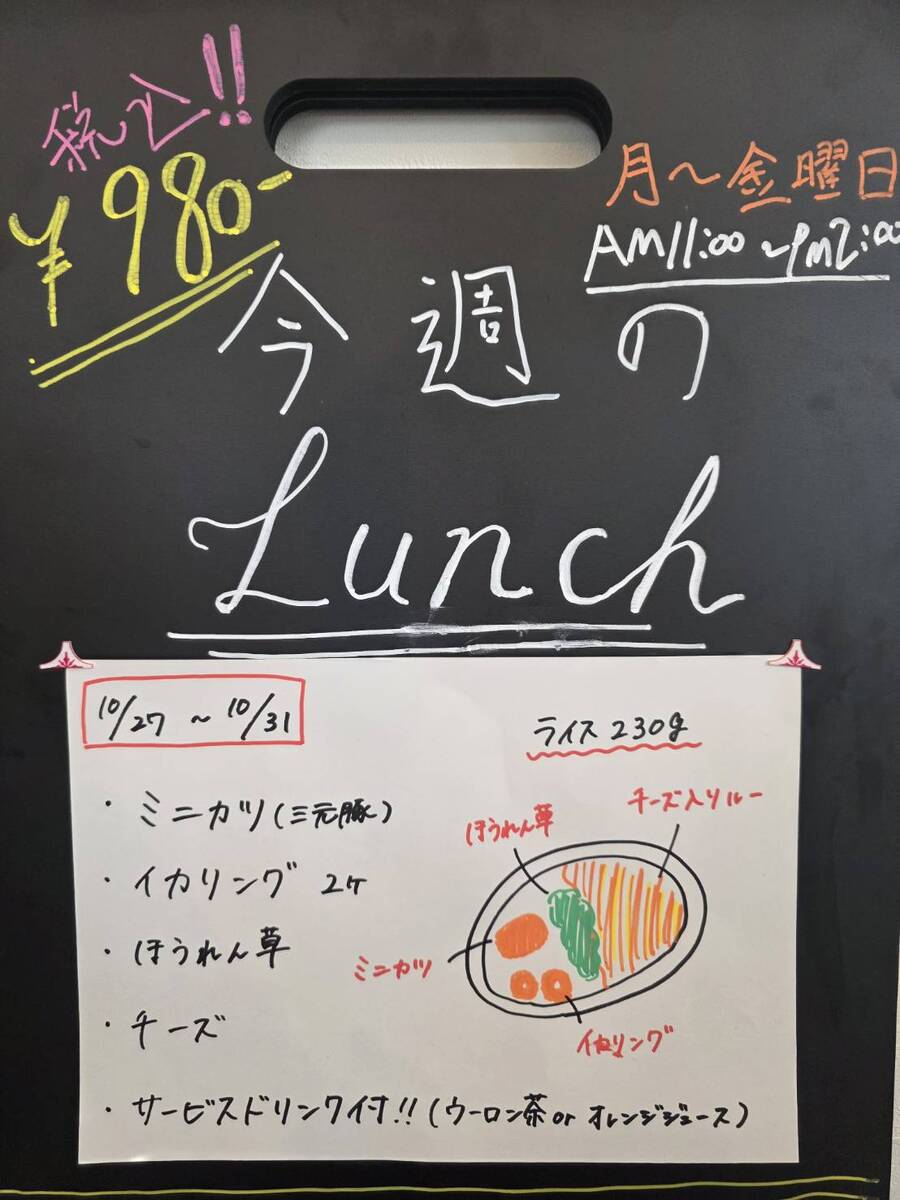 税込!!
¥980-
月〜金曜日
AM11:00〜PM2:00
今週の
Lunch
10/27 〜 10/31
ライス 230g
・ミニカツ(三元豚)
・イカリング 2ケ
・ほうれん草
・チーズ
・サービスドリンク付!!(ウーロン茶 or オレンジジュース)
チーズ入りルー
ほうれん草
ミニカツ
イカリング